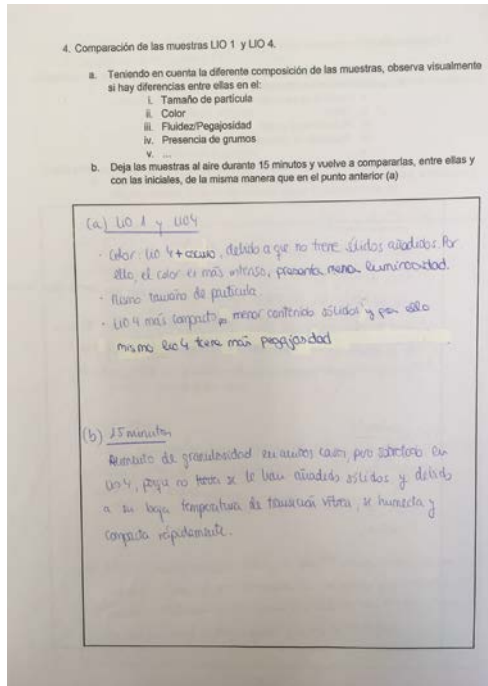 4. Comparación de las muestras LIO 1 y LIO 4.
a. Teniendo en cuenta la diferente composición de las muestras, observa visualmente
si hay diferencias entre ellas en el:
i. Tamaño de partícula
ii. Color
iii. Fluidez/Pegajosidad
iv. Presencia de grumos
v. ...
b. Deja las muestras al aire durante 15 minutos y vuelve a compararlas, entre ellas y
con las iniciales, de la misma manera que en el punto anterior (a)
(a) LIO 1 y LIO4
· Color: LIO 4 + oscuro, debido a que no tiene sólidos añadidos. Por
ello, el color es más intenso, presenta menor luminosidad.
· Mismo tamaño de partícula.
· LIO 4 más compacto, menor contenido sólidos y por ello
mismo LIO4 tiene más pegajosidad
(b) 15 minutos
Aumento de granulosidad en ambos casos, pero sobretodo en
LIO4, porque no se le han añadido sólidos y debido
a su baja temperatura de transición vítrea, se humecta y
compacta rápidamente.